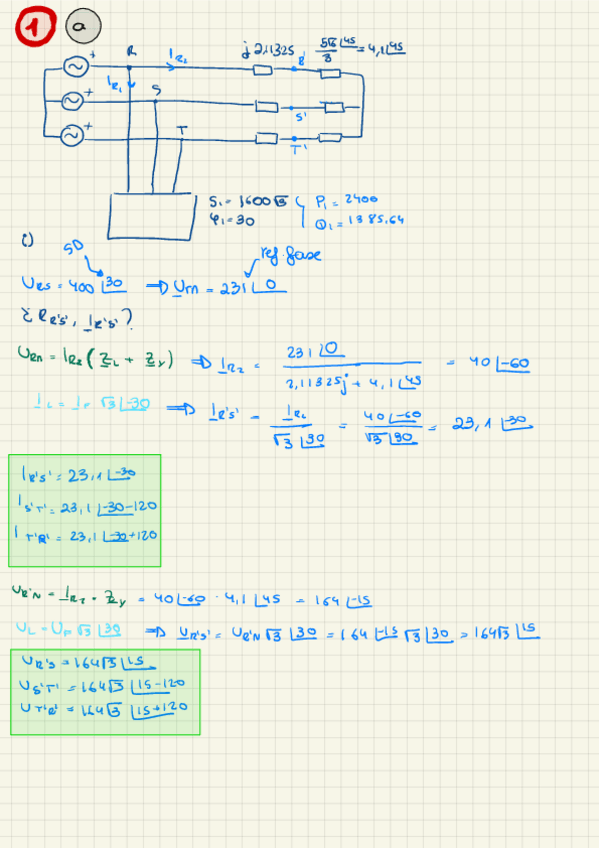 1 a
R I_R2 j 2,11325 R' 5√6/3 ∠45 = 4,1∠45
I_R1 S S'
T T'
S₁ = 1600√3 P₁ = 2400
φ₁ = 30 Q₁ = 1385,64
i) SD ref. fase
U_RS = 400 ∠30 ⇒ U_rn = 231 ∠0
¿ U_R'S', I_R'S'?
U_Rn = I_R2 (Z_L + Z_Y) ⇒ I_R2 = 231∠0 / 2,11325j + 4,1∠45 = 40∠-60
I_L = I_F √3 ∠-30 ⇒ I_R'S' = I_R2 / √3 ∠30 = 40∠-60 / √3 ∠30 = 23,1 ∠30
I_R'S' = 23,1 ∠-30
I_S'T' = 23,1 ∠-30-120
I_T'R' = 23,1 ∠-30+120
U_R'N = I_R2 · Z_Y = 40∠-60 · 4,1∠45 = 164∠-15
U_L = U_F √3 ∠30 ⇒ U_R'S' = U_R'N √3 ∠30 = 164∠-15 √3 ∠30 = 164√3 ∠15
U_R'S = 164√3 ∠15
U_S'T' = 164√3 ∠15-120
U_T'R' = 164√3 ∠15+120